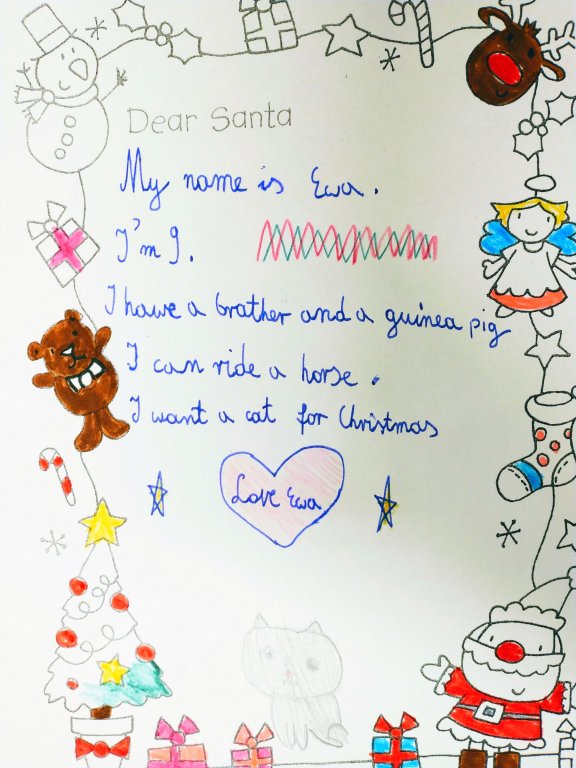 Dear Santa
My name is Ewa.
I'm 9.
I hawe a brather and a guinea pig
I can ride a horse.
I want a cat for Christmas
Love Ewa